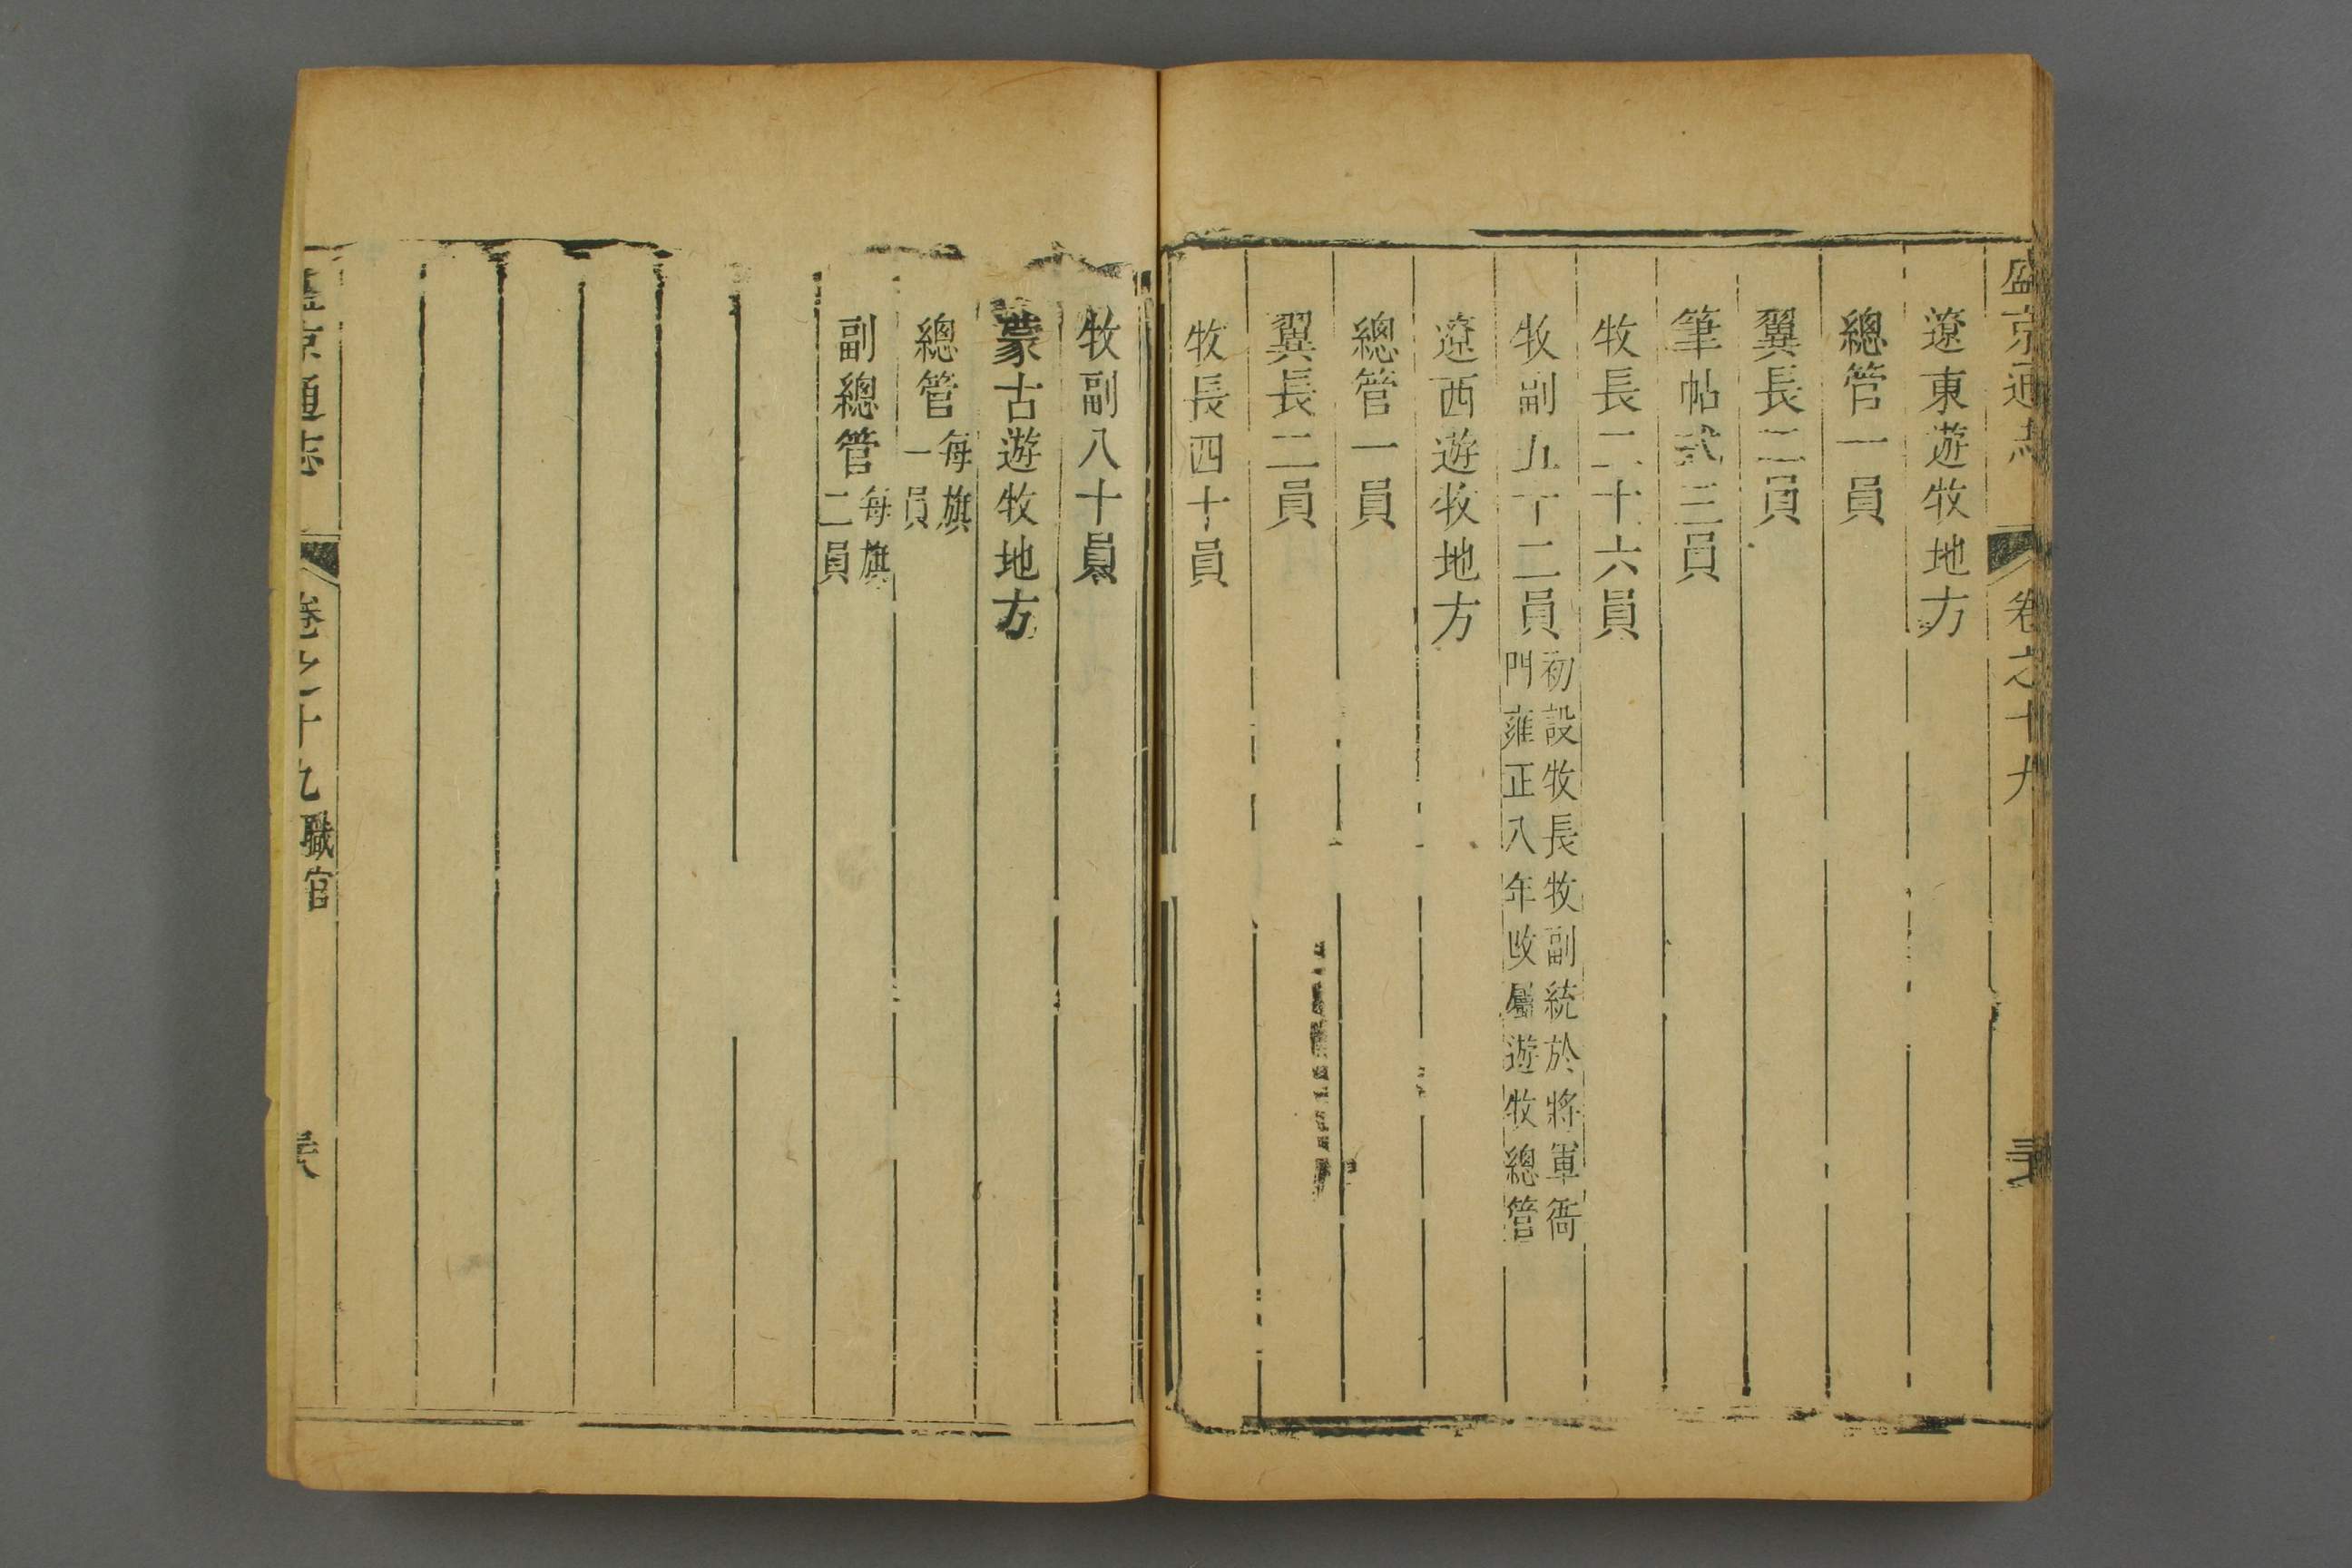 盛京通志 卷之十九
遼東遊牧地方
總管一員
翼長二員
筆帖式三員
牧長二十六員
牧副五十二員 初設牧長牧副統於將軍衙
門雍正八年改屬遊牧總管
遼西遊牧地方
總管一員
翼長二員
牧長四十員
牧副八十員
蒙古遊牧地方
總管 每旗
一員
副總管 每旗
二員
盛京通志 卷之十九 職官